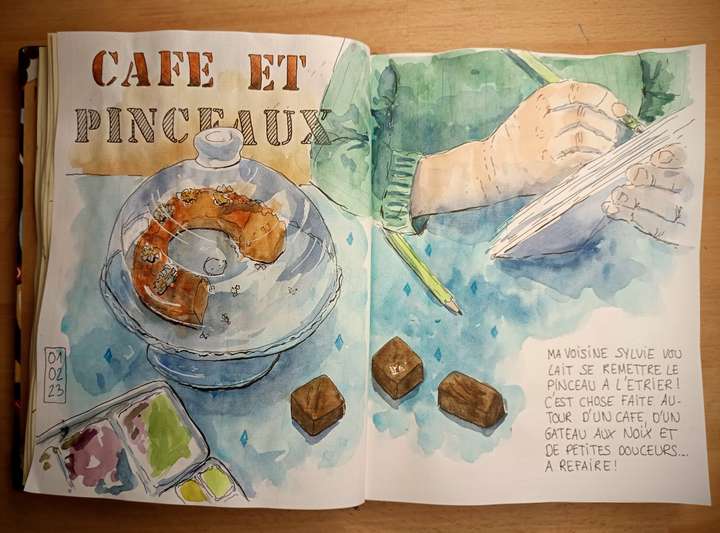 CAFE ET
PINCEAUX
01
02
23
MA VOISINE SYLVIE VOU
LAIT SE REMETTRE LE
PINCEAU A L'ETRIER!
C'EST CHOSE FAITE AU-
TOUR D'UN CAFE, D'UN
GATEAU AUX NOIX ET
DE PETITES DOUCEURS...
A REFAIRE!